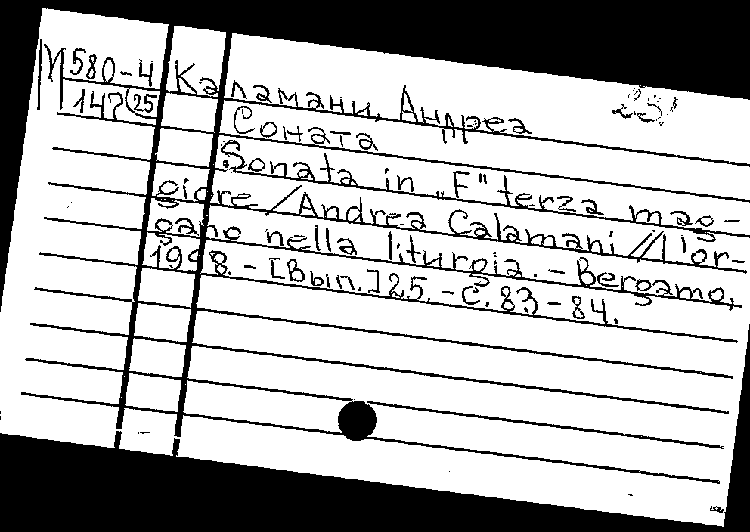 М 580-4 Каламани, Андреа
147(25) Соната
Sonata in „F" terza mag-
giore / Andrea Calamani // L'or-
gano nella liturgia. - Bergamo,
1998. - [Вып.] 25. - С. 83-84.